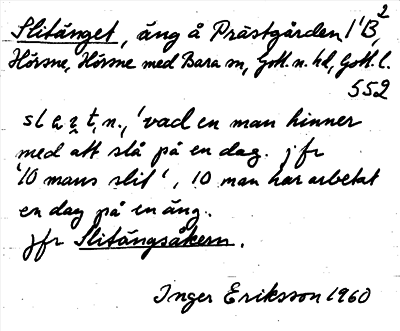 Slitänget, äng å Prästgården 1'B²,
Hörsne, Hörsne med Bara sn, Gotl. n. hd, Gotl. l.
552
slęt, n., 'vad en man hinner
med att slå på en dag. jfr
'10 mans slit', 10 man har arbetat
en dag på en äng.
jfr Slitängsåkern.
Inger Eriksson 1960